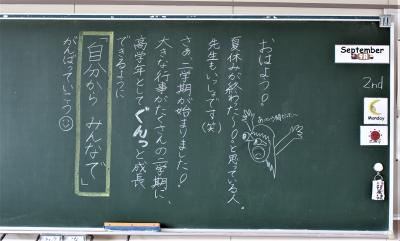 おはよう!
夏休みが終わった〜!と思っている人。
先生もいっしょです(笑)
さぁ二学期が始まりました!
大きな行事がたくさんの二学期に、
高学年としてぐんっと成長
できるように
「自分から みんなで」
がんばっていこう
September
2nd
Monday